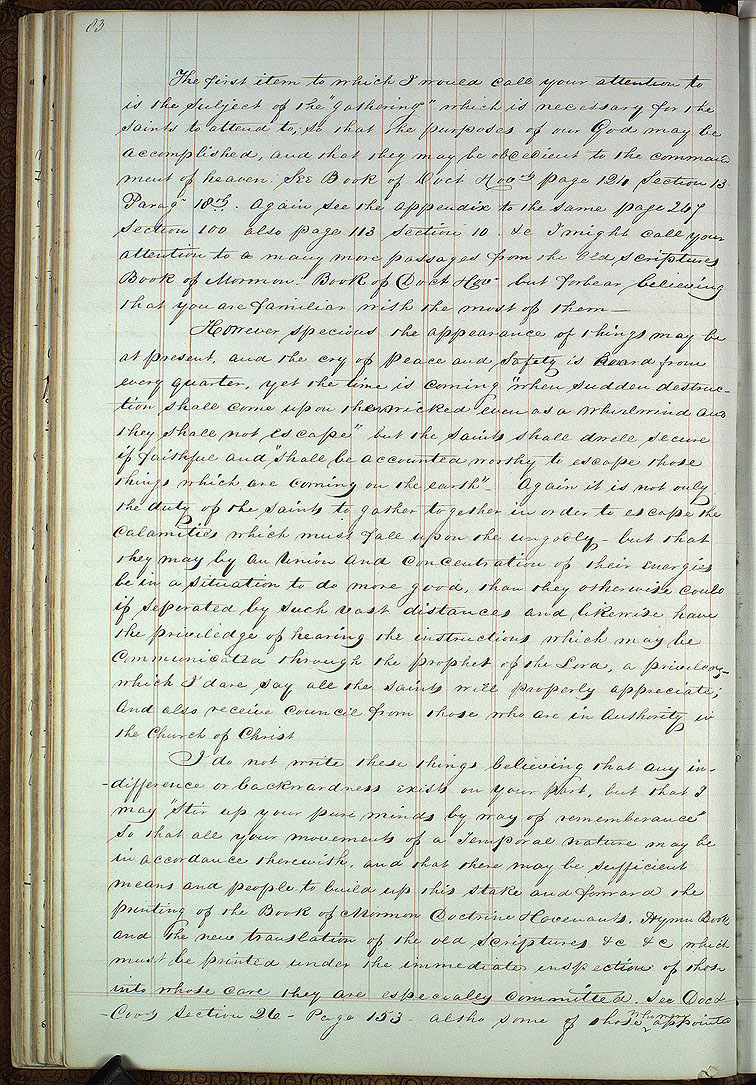 83
The first item to which I would call your attention to
is the subject of the "gathering" which is necessary for the
Saints to attend to, so that the purposes of our God may be
accomplished, and that they may be obedient to the command
ment of heaven. See Book of Doct & Covts page 124 Section 13
Parag 18th. Again see the appendix to the same page 247
Section 100 also page 113 Section 10. &c I might call your
attention to a many more passages from the Old Scriptures
Book of Mormon. Book of Doct & Cov- but forbear, believing
that you are familiar with the most of them—
However specious the appearance of things may be
at present, and the cry of Peace and Safety is heard from
every quarter, yet the time is coming "when sudden destruc-
tion shall come upon the wicked even as a whirlwind and
they shall not escape" but the Saints shall dwell secure
if faithful and "shall be accounted worthy to escape those
things which are coming on the earth"- Again it is not only
the duty of the Saints to gather together in order to escape the
calamities which must fall upon the ungodly- but that
they may by an Union and Concentration of their energies
be in a situation to do more good, than they otherwise could
if seperated by such vast distances and likewise have
the priviledge of hearing the instructions which may be
Communicated through the prophet of the Lord, a
which I dare say all the Saints will properly appreciate;
and also receive Council from those who are in Authority in
the Church of Christ
I do not write these things believing that any in-
-difference or backwardness exists on your part, but that I
may "stir up your pure minds by way of rememberance"
So that all your movements of a Temporal nature may be
in accordance therewith, and that there may be sufficient
means and people to build up this stake and forward the
printing of the Book of Mormon Doctrine & Covenants, Hymn Book
and the new translation of the old Scriptures &c &c which
must be printed under the immediate inspection of those
into whose care they are especially committed. See Doct
-Covs Section 26- Page 153- also some of those appointed